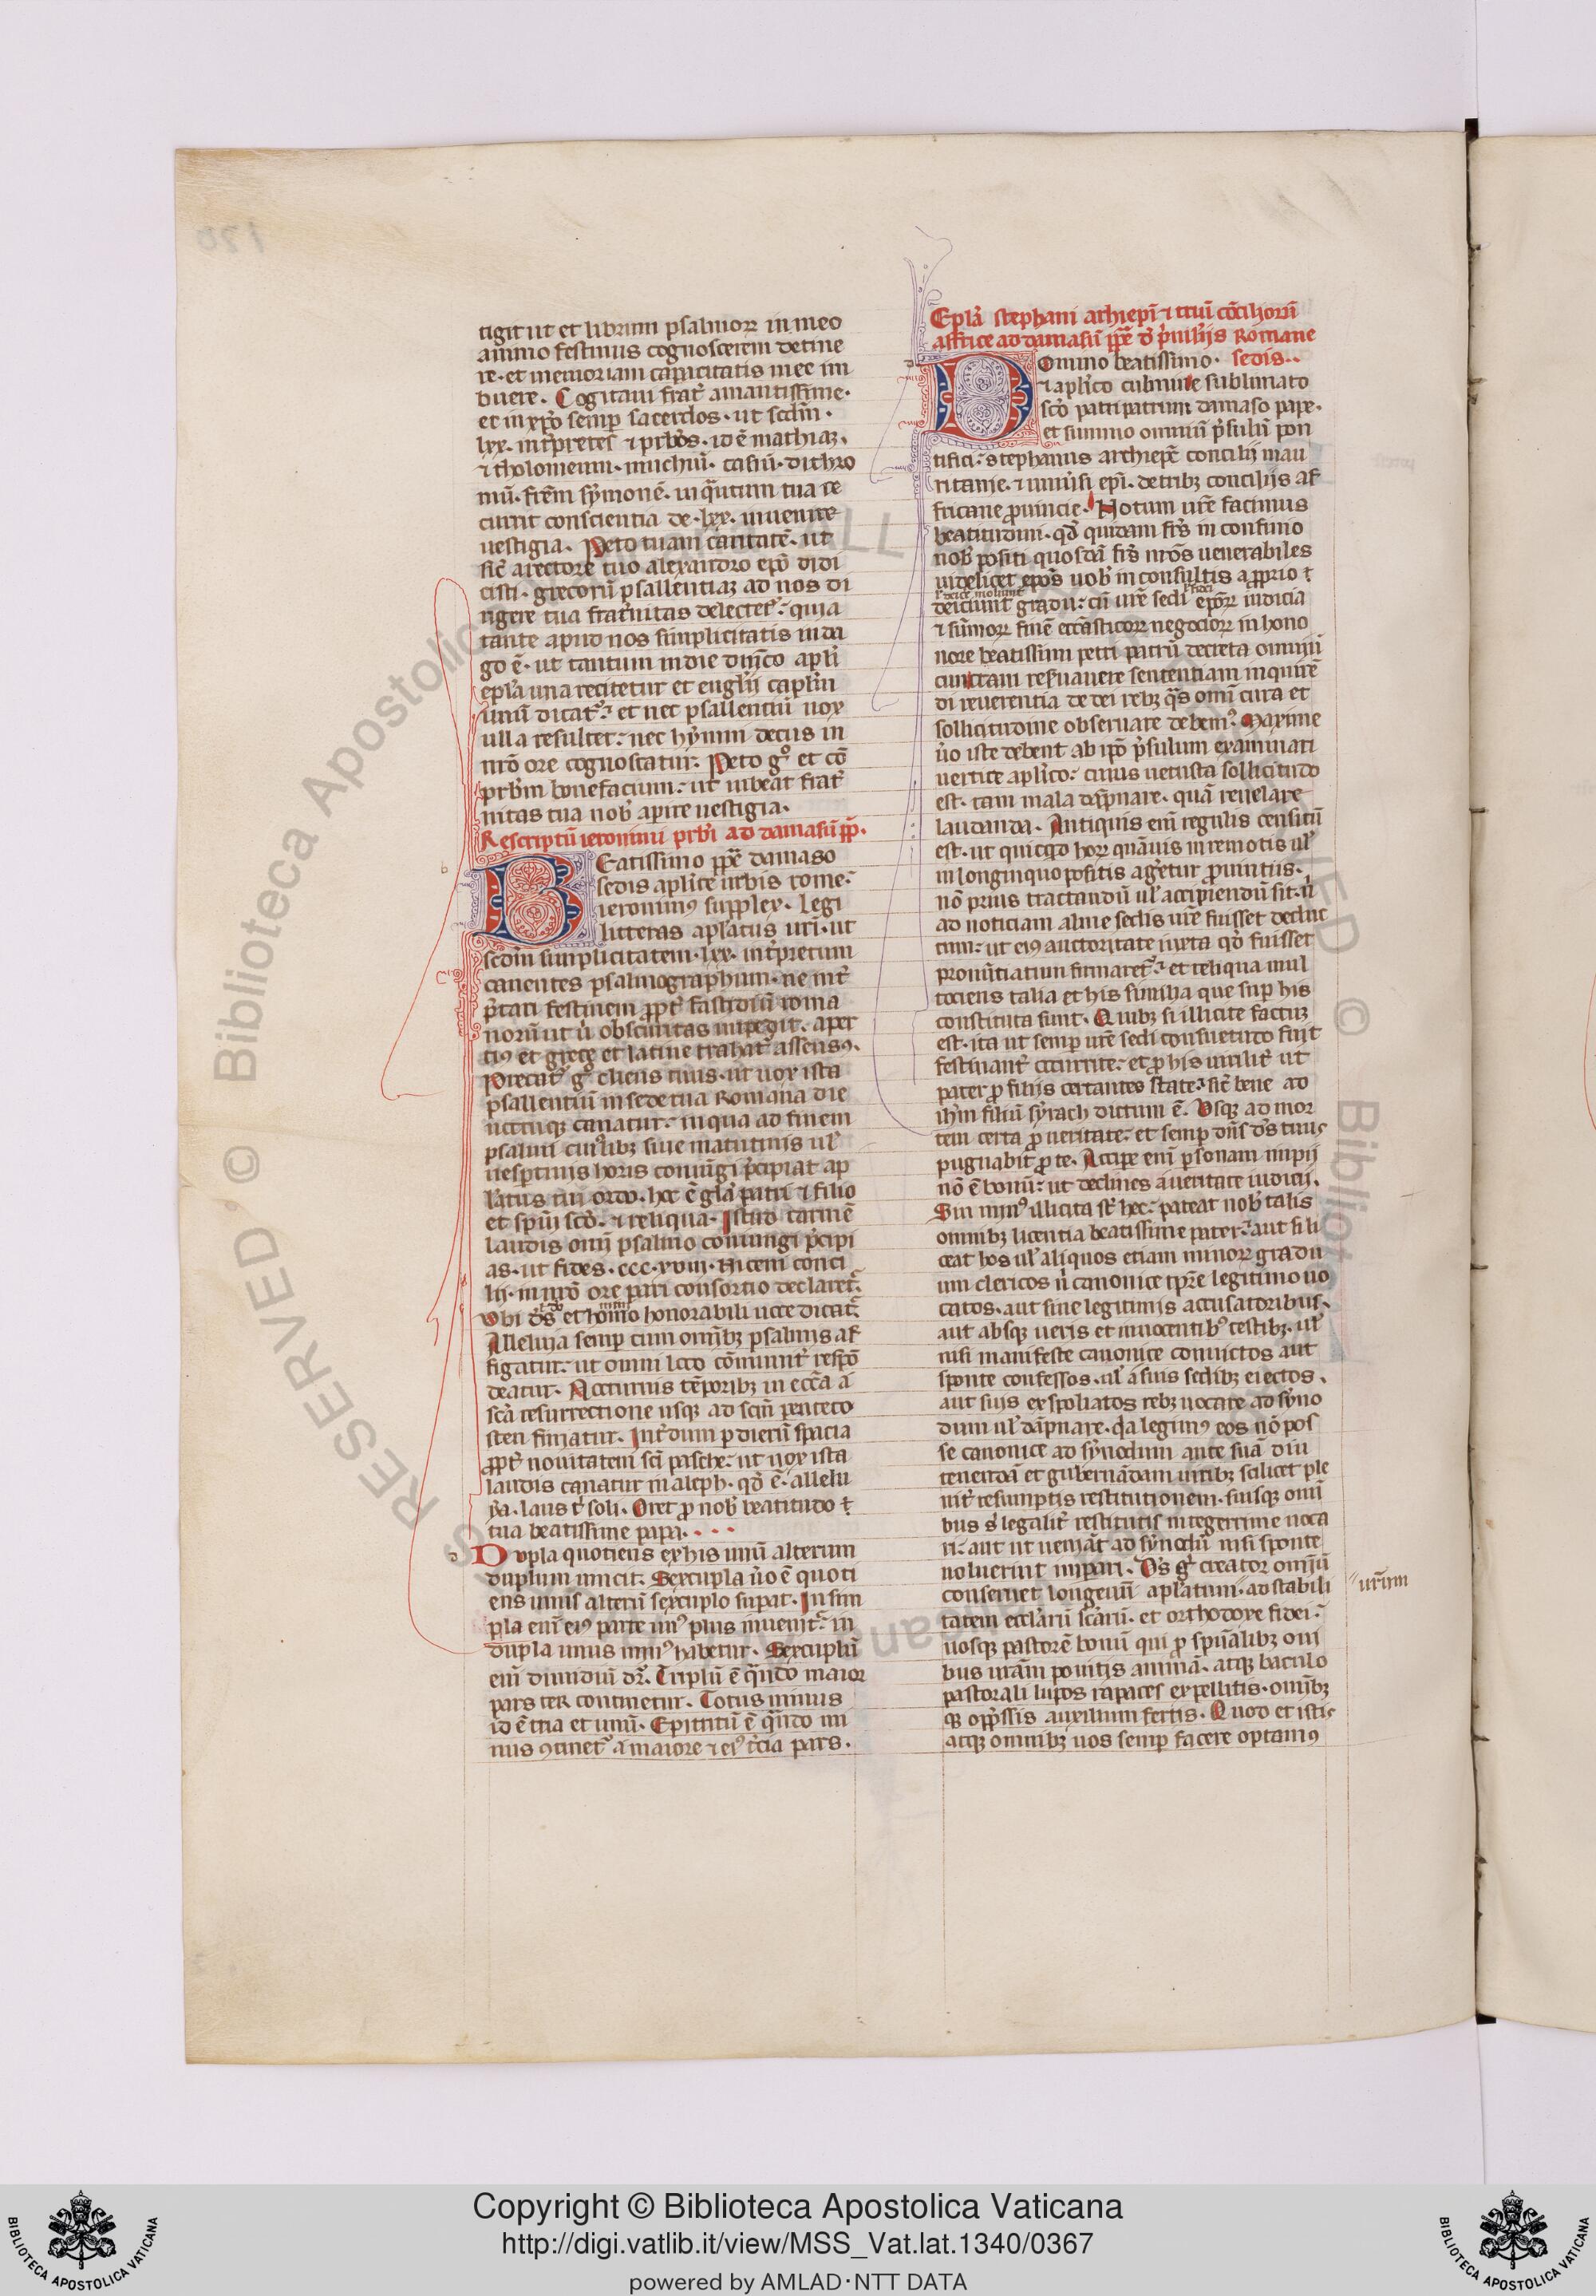 tigit ut et librum psalmorꝝ in meo
animo festinus cognoscerem detine
re · et memoriam capacitatis mee im
buere . Cogitaui frat̃ amantissime ·
et in xp̃o semp̱ sacerdos · ut sc̃dm̃ ·
lxx · int̃pretes ⁊ prb̃os · id ẽ mathiaꝫ .
⁊ tholomeum · muchiũ · casiũ · dithro
mũ · fr̃em sẏmonẽ · inq̃ntum tua re
currit conscientia de · lxx · inuenire
uestigia . Peto tuam caritatẽ · ut
sic̃ a rectore tuo alexandro ep̃o didi
cisti · grecorũ psallentiaꝫ ad nos di
rigere tua frat̃nitas delectet᷑ : quia
tante apud nos simplicitatis inda
go ẽ · ut tantum in die dñico apl̃i
ep̃la una recitetur et eugl̃ij capl̃m
unũ dicat᷑ : et nec psallentiũ uox
ulla resultet : nec hẏmni decus in
nr̃o ore cognoscatur . Peto gͦ et cõ
prb̃m bonefacium : ut iubeat frat̃
nitas tua nob̃ aperire uestigia .
Rescriptũ ieronimi prb̃i ad damasũ pp̃ .
Beatissimo pp̃e damaso
sedis aplice urbis rome :
ieronimꝰ supplex . Legi
litteras apl̃atus ur̃i · ut
sedm̃ simplicitatem · lxx · int̃pretum
canentes psalmographum · ne int̃
p̃tari festinem ꝓpt̃ fastidiũ roma
norũ ut ũ obscuritas impedit . aper
tiꝰ et grece et latine trahat᷑ assensꝰ .
Precat᷑ gͦ cliens tuus · ut uox ista
psallentiũ in sede tua Romana die
noctuqꝫ canatur : in qua ad finem
psalmi cuiꝰlibꝫ siue matutinis ul̃
uesp̱tinis horis coniũgi p̃cipiat ap
l̃atus tui ordo . hoc ẽ gl̃a patri ⁊ filio
et spũi sc̃o · ⁊ reliqua . Istud carmẽ
laudis om̃i psalmo coniungi p̃cipi
as · ut fides · ccc · xviii · Niceni conci
lij · in nr̃o ore pari consortio declaret᷑ .
Vbi dr̃s et homo honorabili uoce dicat᷑
Alleluia semp̱ cum om̃ibꝫ psalmis af
figatur : ut omni loco cõmunit̃ respõ
deatur . Nocturnis tẽporibꝫ in ecc̃a a
sc̃a resurrectione usqꝫ ad scm̃ penteco
sten finiatur . Int̃dum p̱ dierũ spacia
ꝓpt̃ nouitatem sc̃i pasche : ut uox ista
laudis canatur in aleph · qd̃ ẽ · allelu
ẏa · laus t̃ soli . Oret ꝓ nob̃ beatitudo t̃
tua beatissime papa . . . .
Dupla quotiens ex his unũ alterum
duplum uincit . Sexcupla ũo ẽ quoti
ens unus alterũ sexcuplo sup̱at . In sim
pla eni᷑ eiꝰ parte unꝰ plus inuenit᷑ : in
dupla unus minꝰ habetur . Sexcuplũ
em̃ diuiduũ dr̃ . Triplũ ẽ q̃ndo maior
pars ter continetur . Totus minus
id ẽ tria et unũ . Epitritũ ẽ q̃ndo mi
nus ꝯtinet᷑ a maiore ⁊ eiꝰ t̃cia pars .
Epl̃a stephani arhiepi᷑ ⁊ triũ cõciliorũ
affrice ad damasũ pp̃ẽ d̃ p̃uilẽijs Romane
sedis ..
Domino beatissimo ·
⁊ apl̃ico culmine sublimato
sc̃o patri patrum damaso pape .
et summo omniũ p̃sulũ pon
tifici : stephanus archiep̃c concilij mau
ritanie . ⁊ uniũsi ep̃i · de tribꝫ concilijs af
fricane ꝓuincie . Notum ur̃e facimus
beatitudini · qd̃ quidam fr̃s in confinio
nob̃ positi quosdã fr̃s nr̃os uenerabiles
uidelicet ep̃os uob̃ inconsultis a ꝓprio t̃
deiciunt gradu : cũ ur̃e sedi ep̃orꝝ iudicia
⁊ sũmorꝝ finẽ ecc̃asticorꝝ negociorꝝ in hono
nore beatissimi petri patrũ decreta omniũ
cunctam reseruauere sententiam inquirẽ
di reuerentia de dei rebꝫ q̃s om̃i cura et
sollicitudine obseruare debem᷑ . Maxime
ũo iste debent ab ip̃o p̃sulum examinari
uertice apl̃ico : cuius uetusta sollicitudo
est . tam mala dãpnare . quã reuelare
laudanda . Antiquis eni᷑ regulis censitũ
est . ut quicqͥd horꝝ quãuis in remotis ul̃
in longinquo positis ag̃retur ꝓuintiis .
nõ prius tractandũ ul̃ accipiendũ sit . ñ
ad noticiam alme sedis ur̃e fuisset deduc
tum : ut eiꝰ auctoritate iuxta qd̃ fuisset
pronũtiatum firmaret᷑ : et reliqua mul
tociens talia et his similia que sup̱ his
constituta sunt . Quibꝫ si illicite factuꝫ
est . ita ut semp̱ ur̃e sedi consuetudo fuit
festinant̃ occurrite : et ꝓ his uirilit̃ ut
pater ꝓ filijs certantes state : sic̃ bene ad
ih̃m filiũ sẏrach dictum ẽ . Vsqꝫ ad mor
tem certa ꝓ ueritate : et semp̱ dñs d̃s tuus
pugnabit ꝓ te . Accipe eni᷑ p̱sonam impij
nõ ẽ bonũ : ut declines a ueritate iudicij .
Sin minꝰ illicita st̃ hec : pateat nob̃ talis
omnibꝫ licentia beatissime pater : aut si li
ceat hos ul̃ aliquos etiam minorꝝ gradu
um clericos ñ canonice tp̃re legitimo uo
catos · aut sine legitimis accusatoribus ·
aut absqꝫ ueris et innocentibꝰ testibꝫ . ul̃
nisi manifeste canonice conuictos aut
sponte confessos . ul̃ a suis sedibꝫ eiectos .
aut suis expoliatos rebꝫ uocare ad sẏno
dum ul̃ dãpnare . qͥa legimꝰ eos nõ pos
se canonice ad sẏnodum ante suã diu
tenendã et gubernãdam uiribꝫ scilicet ple
nit̃ resumptis restitutionem . suisqꝫ omi᷑
bus s̃ legalit̃ restitutis integerrime uoca
ri : aut ut ueniãt ad sẏnodũ nisi sponte
noluerint imp̱ari . D̃s gͦ creator omniũ
conseruet longeuũ apl̃atum · ad stabili
tatem eccl̃arũ sc̃arũ . et orthodoxe fidei :
uosqꝫ pastorẽ bonũ qui ꝓ spũalibꝫ oui
bus ur̃am ponitis animã . atqꝫ baculo
pastorali lupos rapaces expellitis . om̃ibꝫ
qꝫ opp̃ssis auxilium fertis . Quod et istis
atqꝫ omnibꝫ uos semp̱ facere optamꝰ
ur̃um
Copyright © Biblioteca Apostolica Vaticana
http://digi.vatlib.it/view/MSS_Vat.lat.1340/0367
powered by AMLAD·NTT DATA
BIBLIOTECA APOSTOLICA VATICANA
BIBLIOTECA APOSTOLICA VATICANA